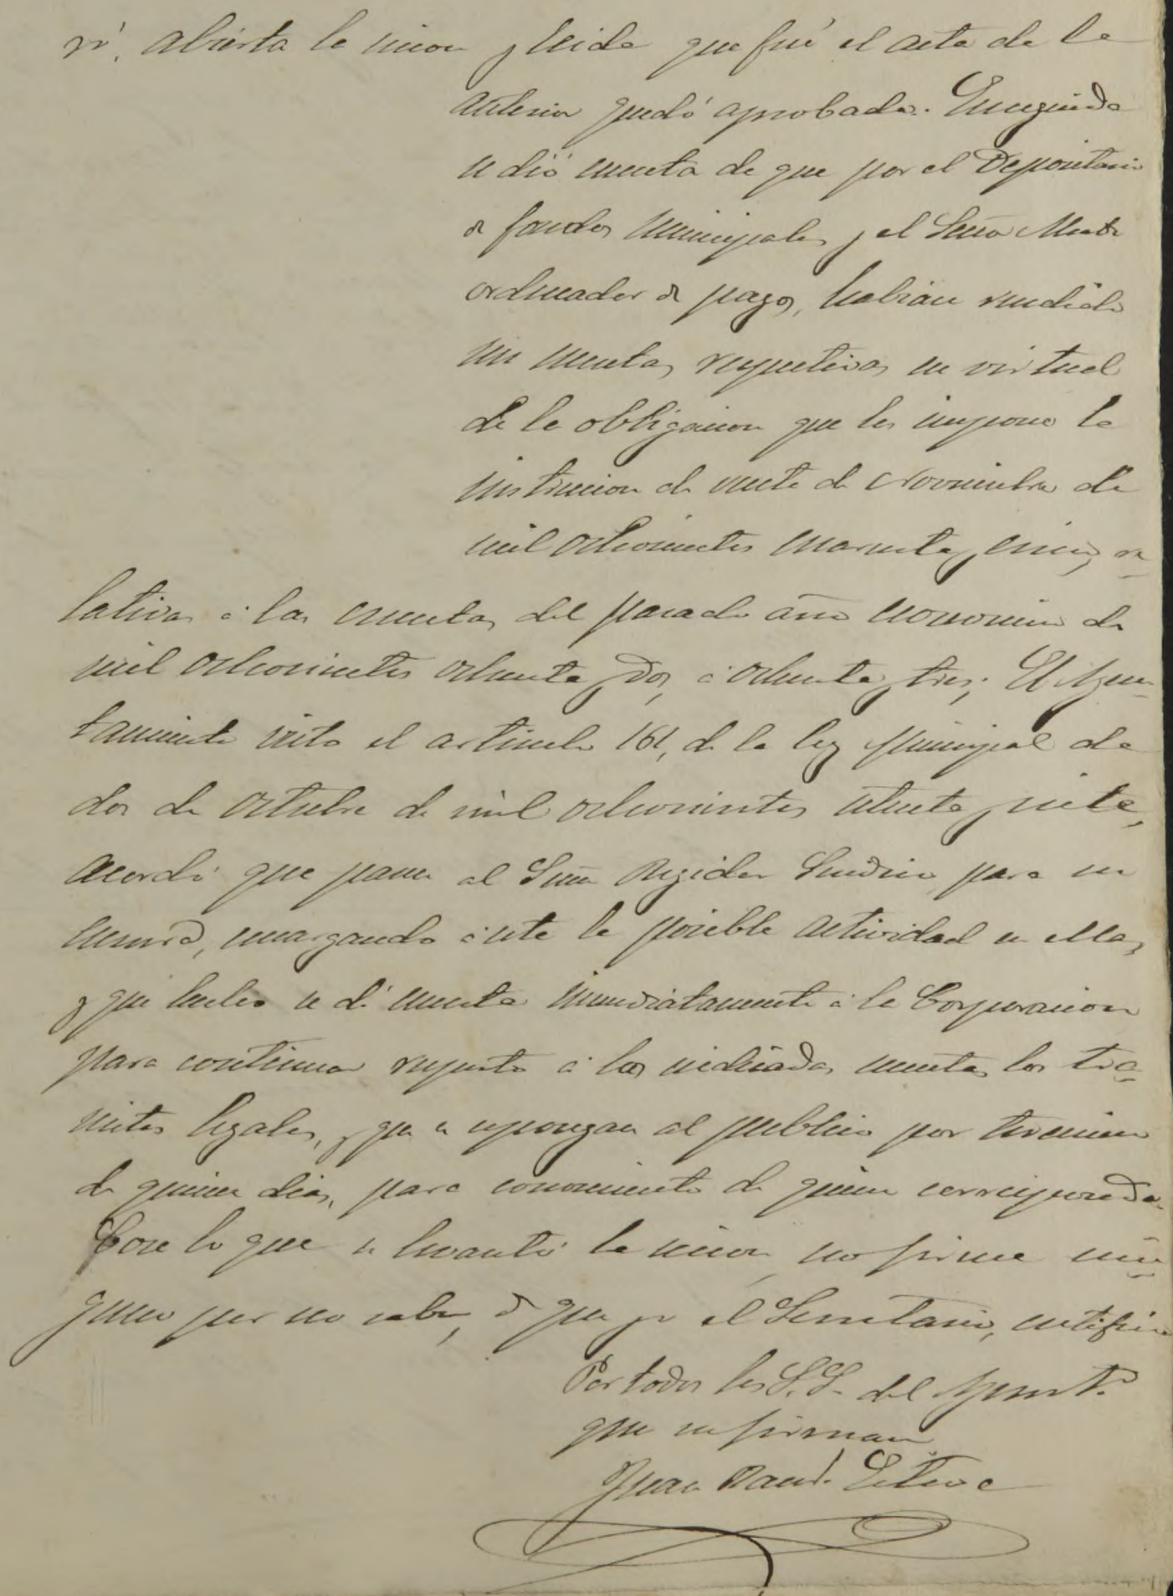 ró. abierta la sesion y leida que fué el acta de la
anterior quedó aprobada. Enseguida
se dió cuenta de que por el Depositario
de fondos municipales y el Señor
ordenador de pagos, habian rendido
sus cuentas respectivas en virtud
de la obligacion que les impone la
instruccion de veinte de Noviembre de
mil ochocientos cuarenta y cinco, re-
lativas á las cuentas del pasado año economico de
mil ochocientos ochenta y dos, á ochenta y tres; El Ayun-
tamiento visto el articulo 161, de la ley Municipal de
dos de Octubre de mil ochocientos setenta y siete,
acordó que pasen al Señor Regidor Sindico para su
censura, encargando á este la posible actividad en ella,
y que hecho se dé cuenta inmediatamente á la Corporacion
para continuar respecto á las indicadas cuentas los tra-
mites legales, y que se espongan al publico por termino
de quince dias, para conocimiento de quien corresponda.
Con lo que se levantó la sesion, no firma nin-
guno por no saber, de que yo el Secretario, certifico
Por todos los S.S. del Ayunt.º
que no firman
Juan Esteve